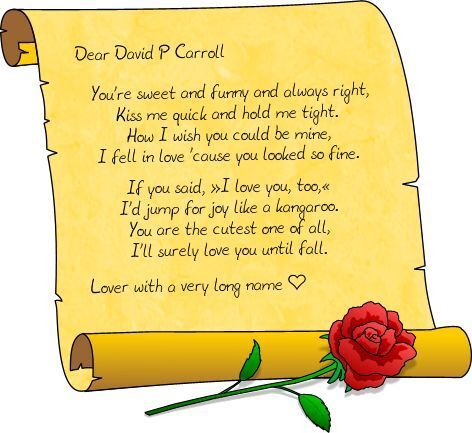 Dear David P Carroll
You're sweet and funny and always right,
Kiss me quick and hold me tight.
How I wish you could be mine,
I fell in love 'cause you looked so fine.
If you said, »I love you, too,«
I'd jump for joy like a kangaroo.
You are the cutest one of all,
I'll surely love you until fall.
Lover with a very long name ♡